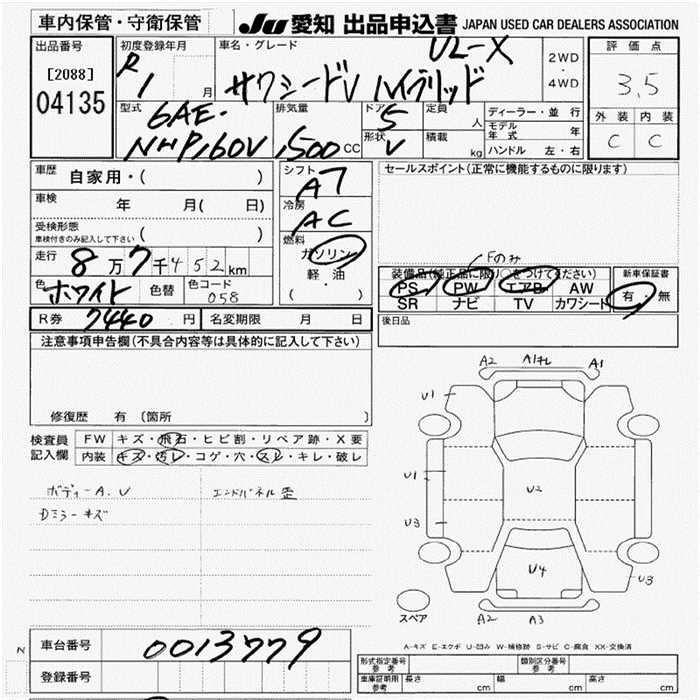 車内保管・守衛保管
JU 愛知 出品申込書 JAPAN USED CAR DEALERS ASSOCIATION
出品番号 初度登録年月 車名・グレード 評価点
[2088] R1 月 サクシードV ハイブリッド UL-X 2WD・4WD 3.5
04135
型式 6AE- 排気量 ドア 5 定員 人 ディーラー・並行 外装 内装
NHP160V 1500 CC 形状 V 積載 kg モデル年式 年 C C
ハンドル 左・右
車歴 自家用・( ) シフト AT セールスポイント(正常に機能するものに限ります)
車検 年 月( 日) 冷房 AC
受検形態 ( )
車検付きのみ記入して下さい
燃料 ガソリン
Fのみ
走行 8万7千452km 軽油 装備品(純正品に限り○をつけてください) 新車保証書
色 ホワイト 色替 色コード 058 ( ・ ) PS PW エアB AW 有・無
SR ナビ TV カワシート
R券 7440 円 名変期限 月 日 後日品
注意事項申告欄(不具合内容等は具体的に記入して下さい)
修復歴 有(箇所
検査員記入欄 FW キズ・飛石・ヒビ割・リペア跡・X要
内装 キズ・汚レ・コゲ・穴・スレ・キレ・破レ
ボディーA.U エンドパネル歪
Dミラーキズ
A2 A1 A1
U1
U1 U2
U3
U4 U3
スペア A2 A3
A-キズ E-エクボ U-凹み W-補修跡 S-サビ C-腐食 XX-交換済
N
車台番号 0013779
型式指定番号 参考 類別区分番号 参考
登録番号 車庫証明用 参考 長さ cm 幅 cm 高さ cm